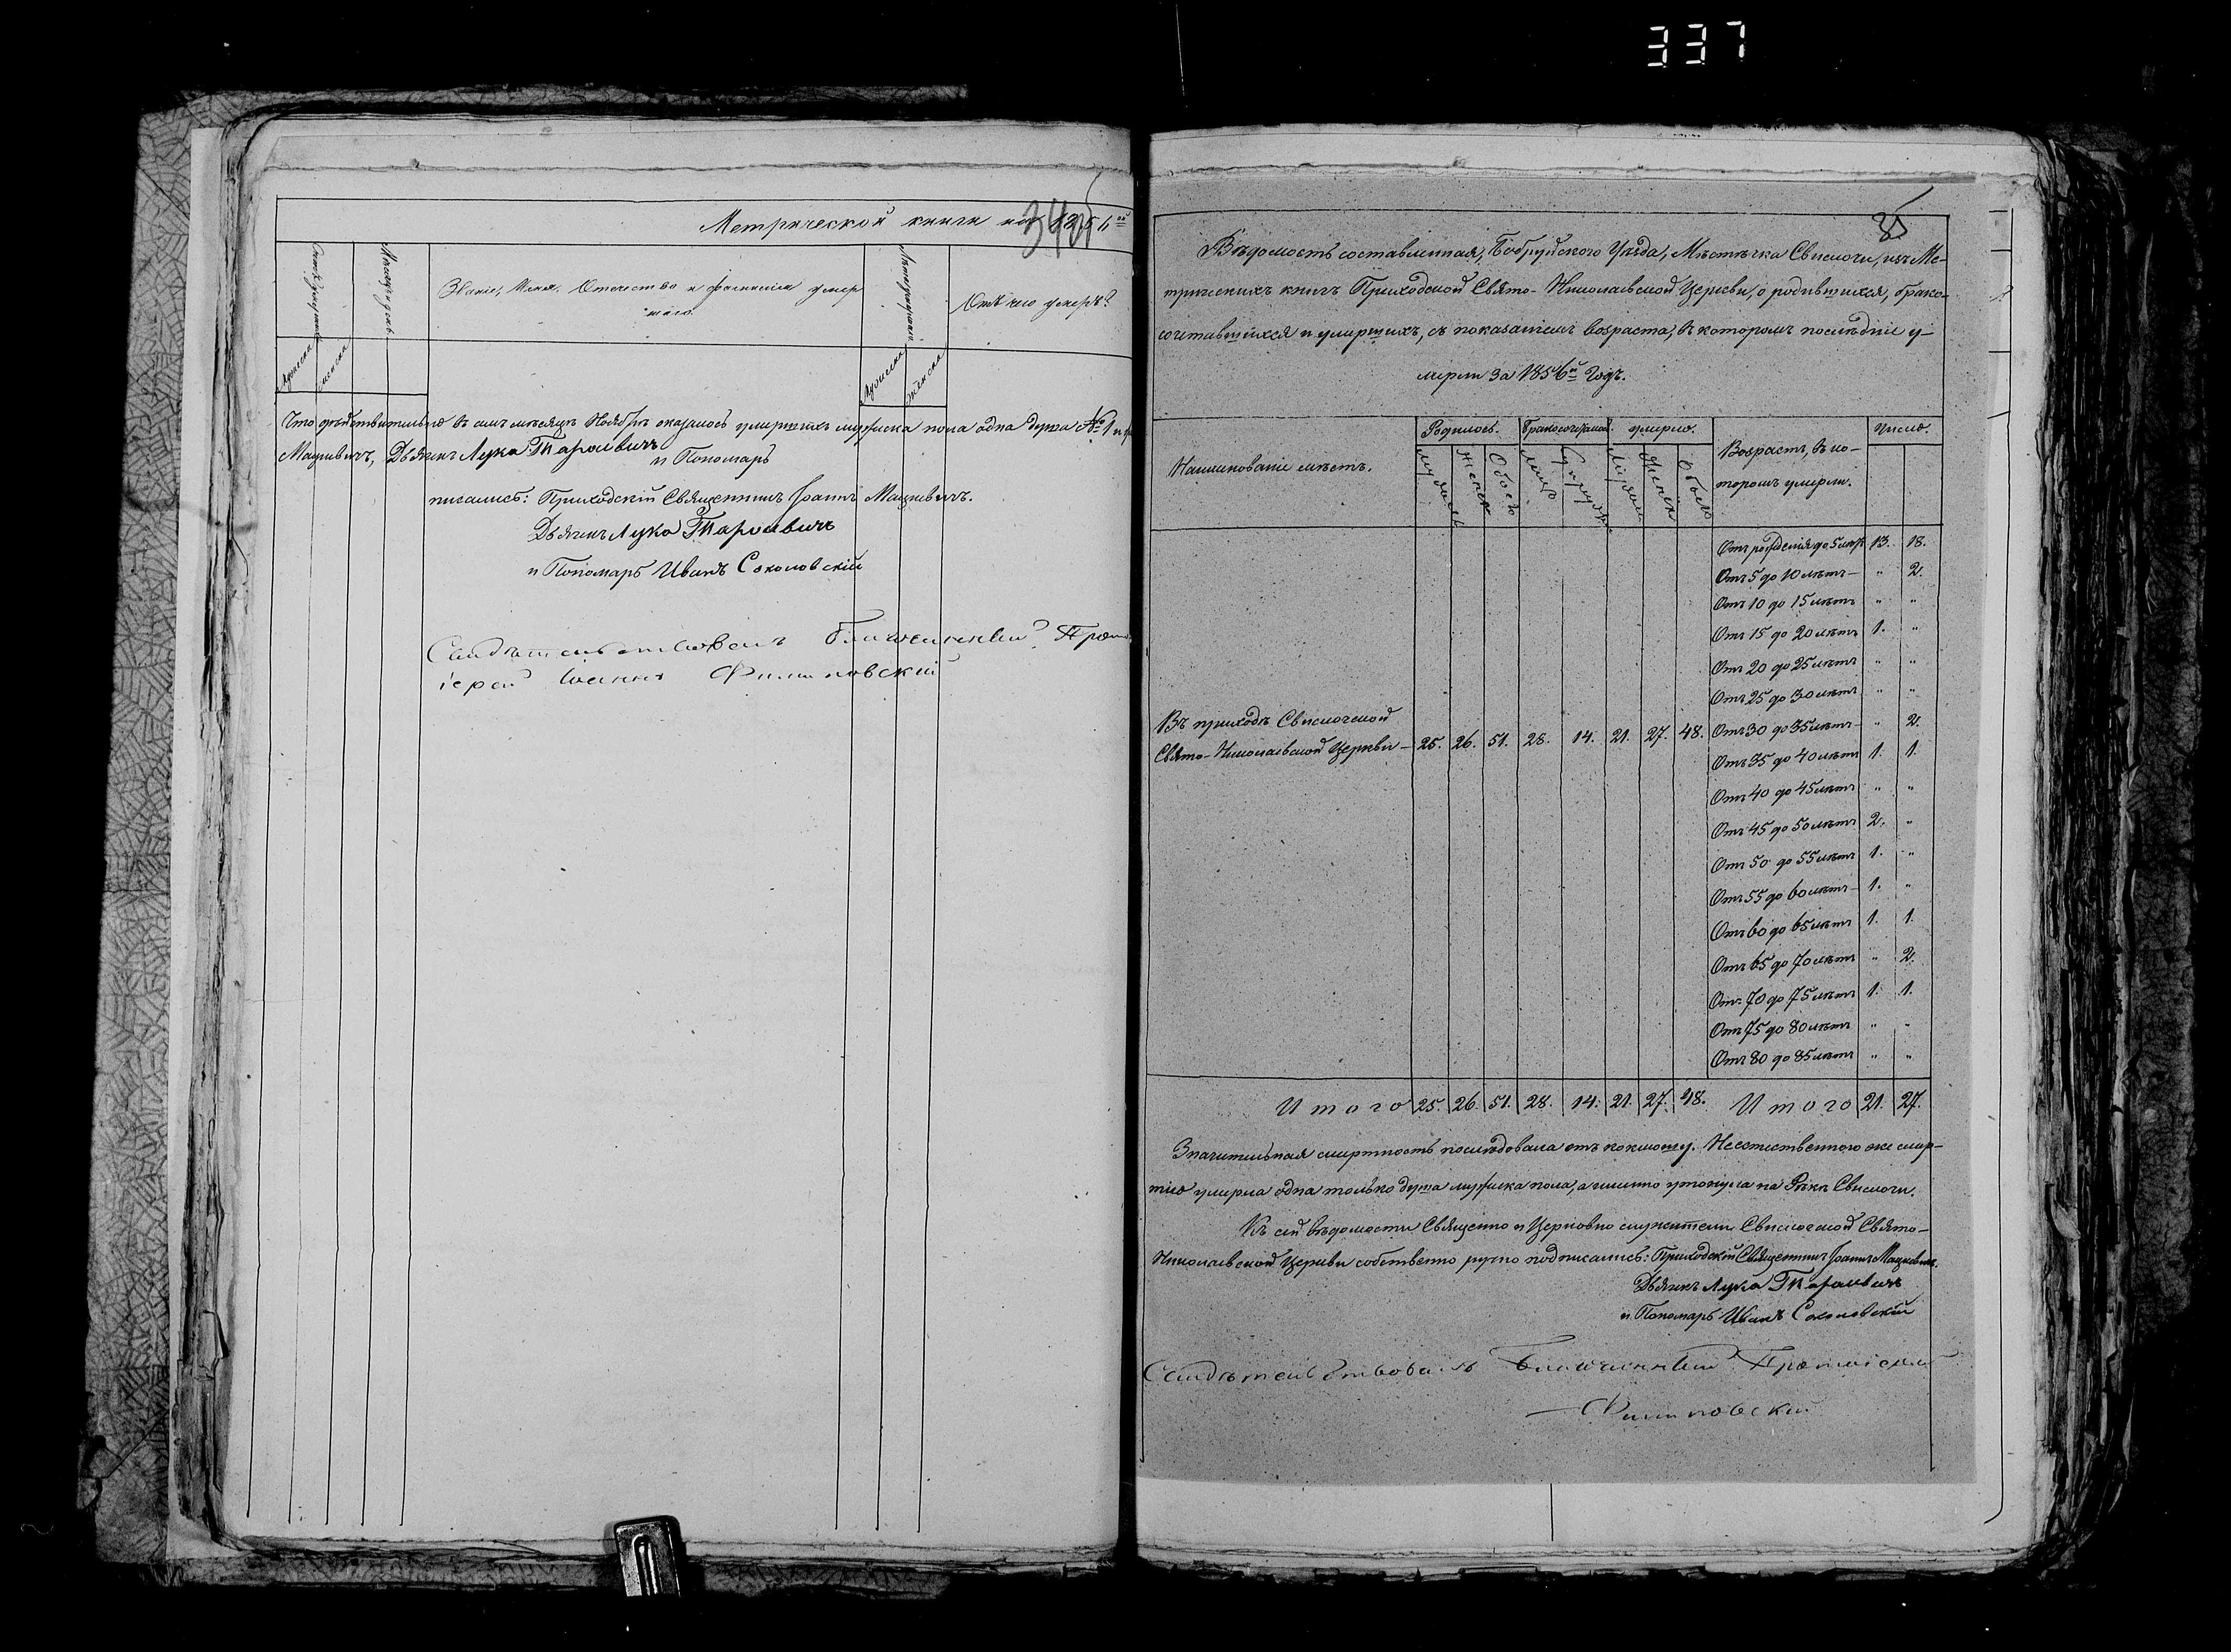 337
Метрической книги на 1856ой
340
Званіе, Имя, Отечество и фамилія умер
шаго.
Отъ чего умеръ?
мужеска
женска
мужеска
женска
Что дѣйствительно въ семъ мѣсяцѣ Ноябрѣ оказалось умершихъ мужеска пола одна душа № 1 и
Мацкевичъ, Дьячекъ Лука Тарасевичъ
и Пономарь
писались: Приходскій Священникъ Іоаннъ Мацкевичъ.
Дьячекъ Лука Тарасевичъ
и Пономарь Иванъ Соколовскій
Свидѣтельствовалъ Благочинный Прото
іерей Іоаннъ Филиповскій
85
Вѣдомость составленная, Бобруйского Уѣзда, Мѣстечка Свислочи, изъ Ме-
трическихъ книгъ Приходской Свято-Николаевской Церкви, о родившихся, брако-
сочетавшихся и умершихъ, съ показаніемъ возраста, въ которомъ послѣдніе у-
мерли за 1856й Годъ.
Наименованіе мѣстъ.
Родилось. Бракосочеталось. умерло.
Возрастъ, въ ко-
торомъ умерли.
Число.
Отъ рожденія до 5 лѣтъ 13. 18.
Отъ 5 до 10 лѣтъ — " 2.
Отъ 10 до 15 лѣтъ " "
Отъ 15 до 20 лѣтъ 1. "
Отъ 20 до 25 лѣтъ " "
Отъ 25 до 30 лѣтъ " "
Въ приходѣ Свислочской
Свято-Николаевской Церкви — 25. 26. 51. 28. 14. 21. 27. 48.
Отъ 30 до 35 лѣтъ — " 2.
Отъ 35 до 40 лѣтъ 1. 1.
Отъ 40 до 45 лѣтъ " "
Отъ 45 до 50 лѣтъ 2. "
Отъ 50 до 55 лѣтъ 1. "
Отъ 55 до 60 лѣтъ — 1. "
Отъ 60 до 65 лѣтъ 1. 1.
Отъ 65 до 70 лѣтъ " 2.
Отъ 70 до 75 лѣтъ 1. 1.
Отъ 75 до 80 лѣтъ " "
Отъ 80 до 85 лѣтъ " "
Итого 25. 26. 51. 28. 14. 21. 27. 48. Итого 21. 27.
Значительная смертность послѣдовала отъ коклюшу. Неестественною же смер-
тію умерла одна только душа мужеска пола, а именно утонула на Рѣкѣ Свислочи.
Къ сей вѣдомости Священно и Церковно служители Свислочской Свято-
Николаевской Церкви собственно ручно подписались: Приходскій Священникъ Іоаннъ Мацкевичъ.
Дьячекъ Лука Тарасевичъ
и Пономарь Иванъ Соколовскій
Свидѣтельствовалъ Благочинный Протоіерей
Филиповскій